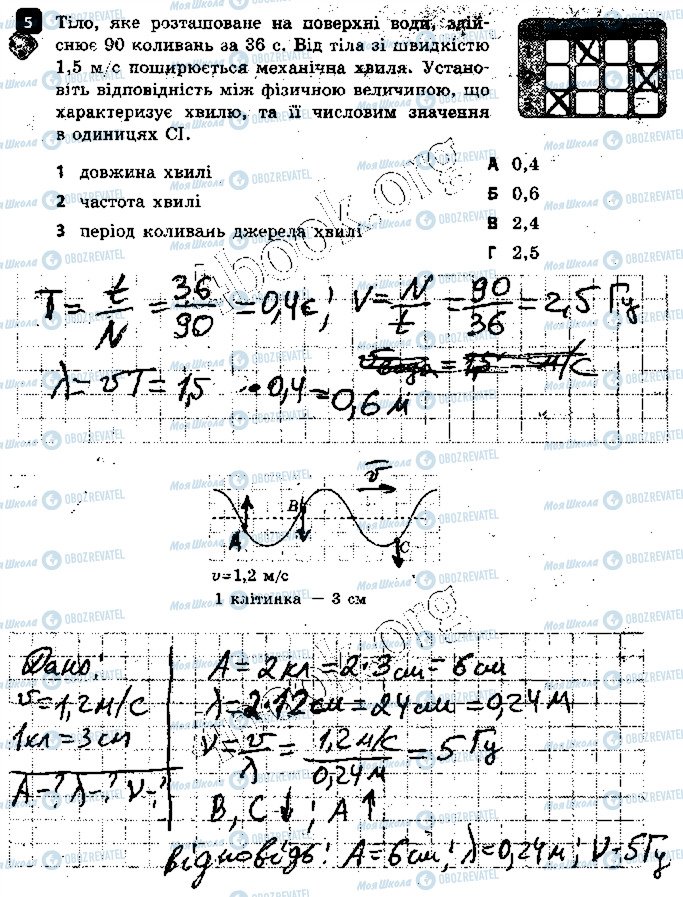 5 Тіло, яке розташоване на поверхні води, здій-
снює 90 коливань за 36 с. Від тіла зі швидкістю
1,5 м/с поширюється механічна хвиля. Устано-
віть відповідність між фізичною величиною, що
характеризує хвилю, та її числовим значення
в одиницях СІ.
1 довжина хвилі
2 частота хвилі
3 період коливань джерела хвилі
А 0,4
Б 0,6
В 2,4
Г 2,5
T = t/N = 36/90 = 0,4 с; ν = N/t = 90/36 = 2,5 Гц
λ = υT = 1,5 · 0,4 = 0,6 м
υ
A B C
υ = 1,2 м/с
1 клітинка — 3 см
Дано:
υ = 1,2 м/с
1 кл = 3 см
A - ? λ - ? ν - ?
A = 2 кл = 2 · 3 см = 6 см
λ = 2 · 12 см = 24 см = 0,24 м
ν = υ/λ = 1,2 м/с / 0,24 м = 5 Гц
B, C ↓ ; A ↑
Відповідь: A = 6 см; λ = 0,24 м; ν = 5 Гц